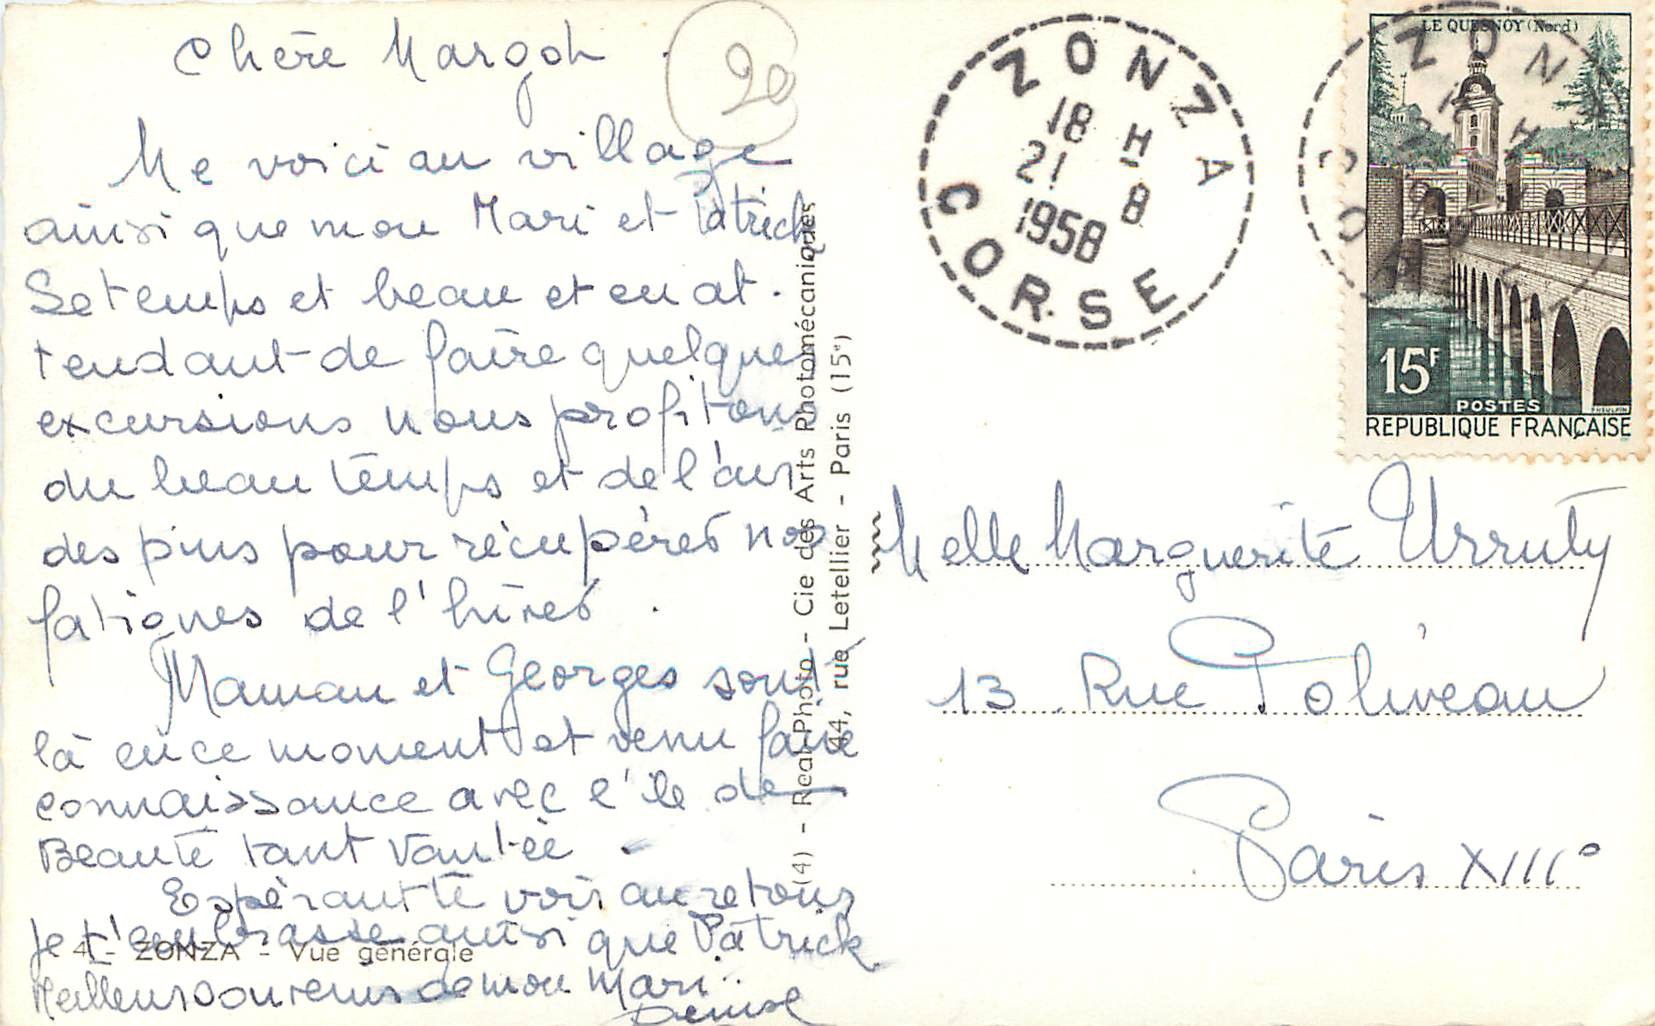 Chère Margot
20
Me voici au village
ainsi que mon Mari et Patrick
Le temps et beau et en at.
tendant de faire quelques
excursions nous profitons
du beau temps et de l'air
des pins pour récupérer nos
fatigues de l'hiver.
Maman et Georges sont
là en ce moment et venu faire
connaissance avec l'île de
Beauté tant Vantée
Espérant te voir au retour
Je t'embrasse ainsi que Patrick
Meilleurs Souvenirs de mon Mari
Denise
4 - ZONZA - Vue générale
(4) - Real-Photo - Cie des Arts Photomécaniques
44, rue Letellier - Paris (15e)
ZONZA
18 H
21 8
1958
CORSE
LE QUESNOY (Nord)
15F
POSTES
REPUBLIQUE FRANÇAISE
ZONZA
Melle Marguerite Urruty
13 Rue Poliveau
Paris XIII°